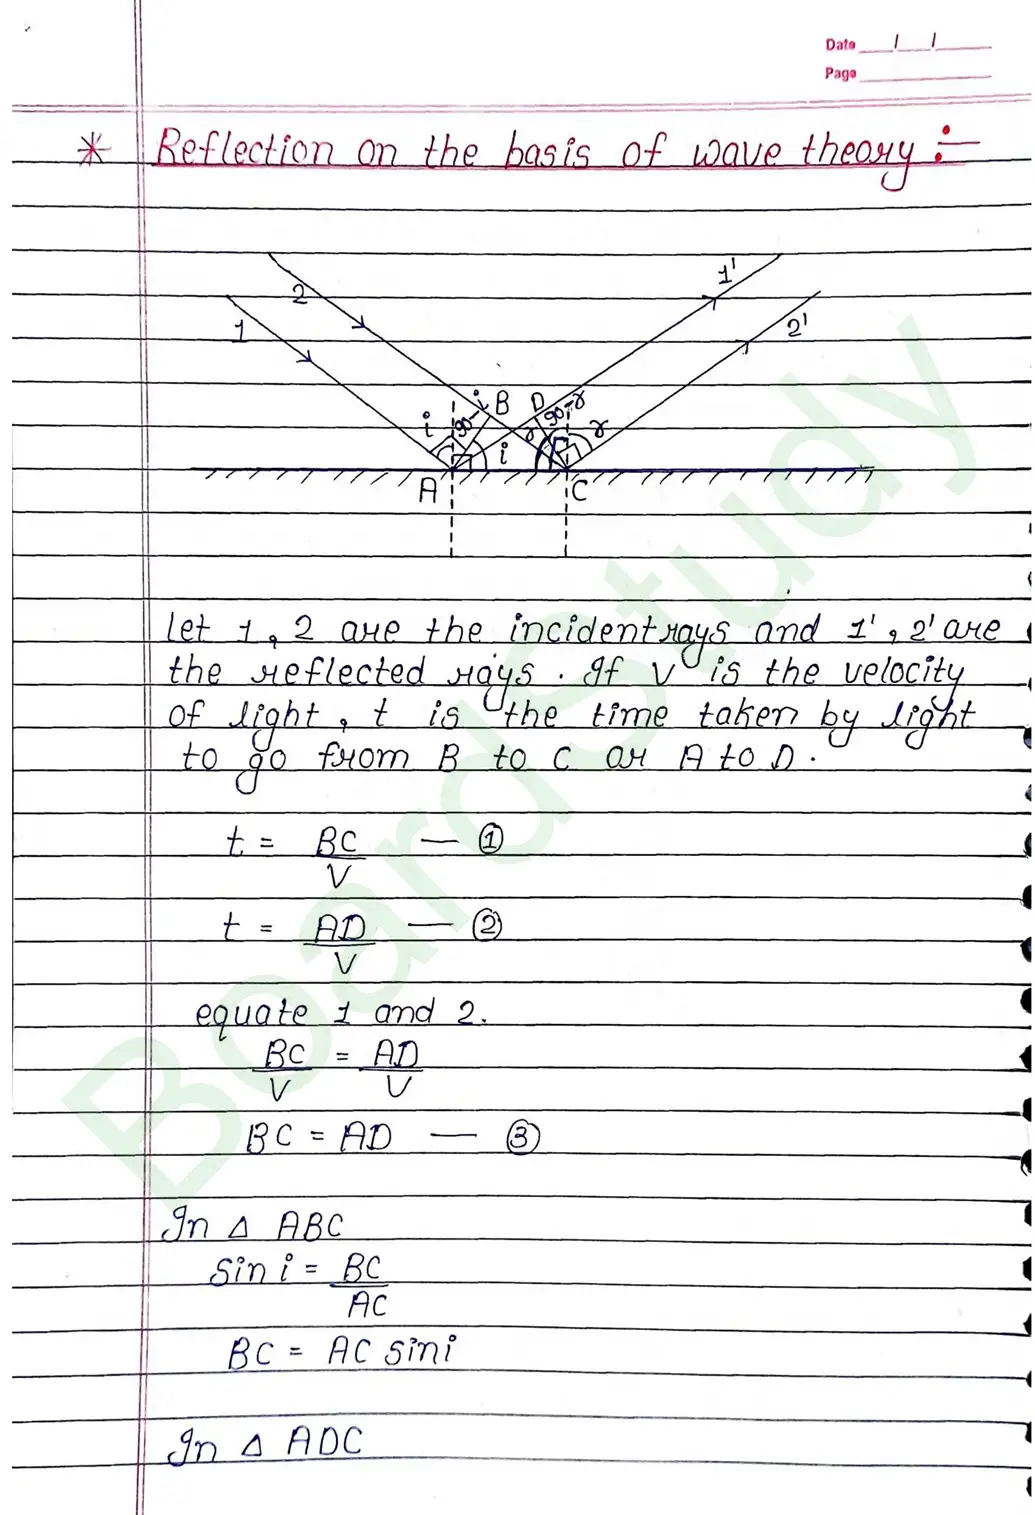 Date
Page
* Reflection on the basis of wave theory :-
1'
2
2'
1
B D
i 90-i r 90-r r
i
A C
Let 1, 2 are the incident rays and 1', 2' are
the reflected rays. If V is the velocity
of light, t is the time taken by light
to go from B to C or A to D.
t = BC/V — ①
t = AD/V — ②
equate 1 and 2.
BC/V = AD/V
BC = AD — ③
In △ ABC
sin i = BC/AC
BC = AC sin i
In △ ADC
BoardStudy